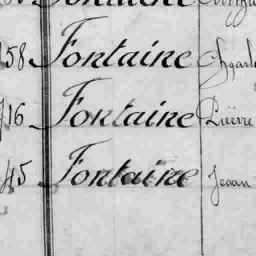 58 Fontaine
16 Fontaine Pierre
45 Fontaine Jean